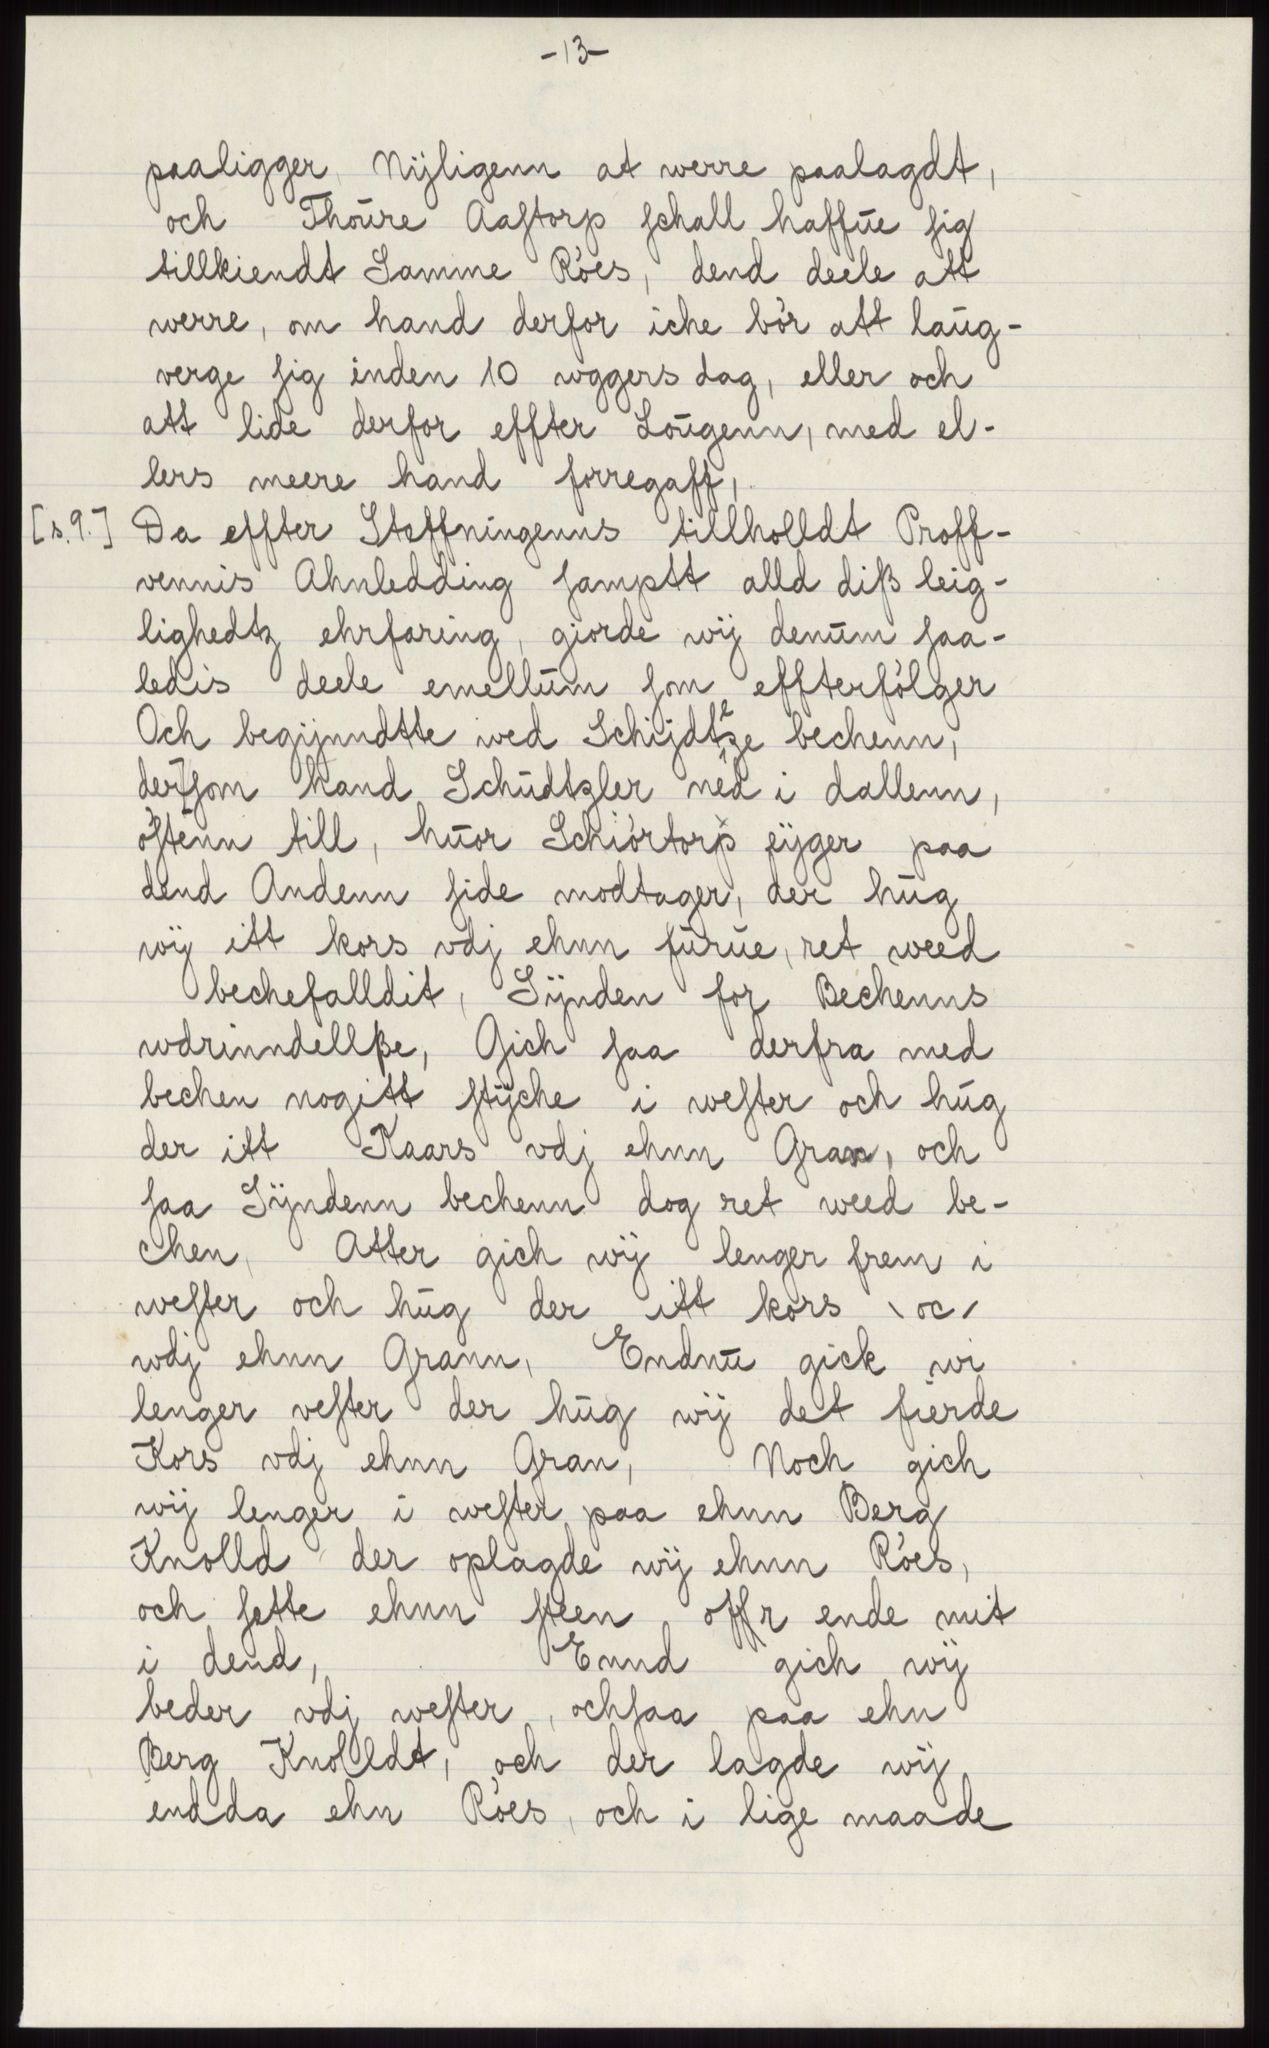 -13-
paaligger, Nÿligenn at werre paalagdt,
och Thoŭre Aaſtorp ſchall haffŭe ſig
tillkiendt Samme Röes, dend deele att
werre, om hand derfor iche bör att laŭg-
verge ſig inden 10 wggers dag, eller och
att lide derfor effter Loŭgenn, med el-
lers meere hand forregaff,
[s.9.] Da effter Steffningenns tillholldt Proff-
vennis Ahnledding ſamptt alld diß leig-
lighedtz ehrfaring, giorde wij denŭm ſaa-
ledis deele emellŭm ſom effterfölger
Och begÿnndtte wed Schijdtzle bechenn,
derſom hand Schŭdtzler ned i dallenn,
öſtenn till, hŭor Schiörtorp eÿger paa
dend Andenn ſide modtager, der hŭg
wÿ itt kors vdj ehnn fŭrŭe, ret weed
bechefalldit, Sÿnden for Bechenns
wdrinndellße, Gich ſaa derfra med
bechen nogitt ſtÿche i weſter och hŭg
der itt Kaars vdj ehnn Gran, och
ſaa Sÿndenn bechenn dog ret weed be-
chen, Atter gich wÿ lenger frem i
weſter och hŭg der itt kors \ oc /
wdj ehnn Grann, Endnŭ gick wi
lenger veſter der hŭg wÿ det fierde
Kors vdj ehnn Gran, Noch gich
wÿ lenger i weſter paa ehnn Berg
Knolld der oplagde wÿ ehnn Röes,
och ſette ehnn ſteen offr ende mit
i dend, Ennd gich wÿ
beder vdj weſter, ochſaa paa ehn
Berg Knolldt, och der lagde wÿ
endda ehn Röes, och i lige maade